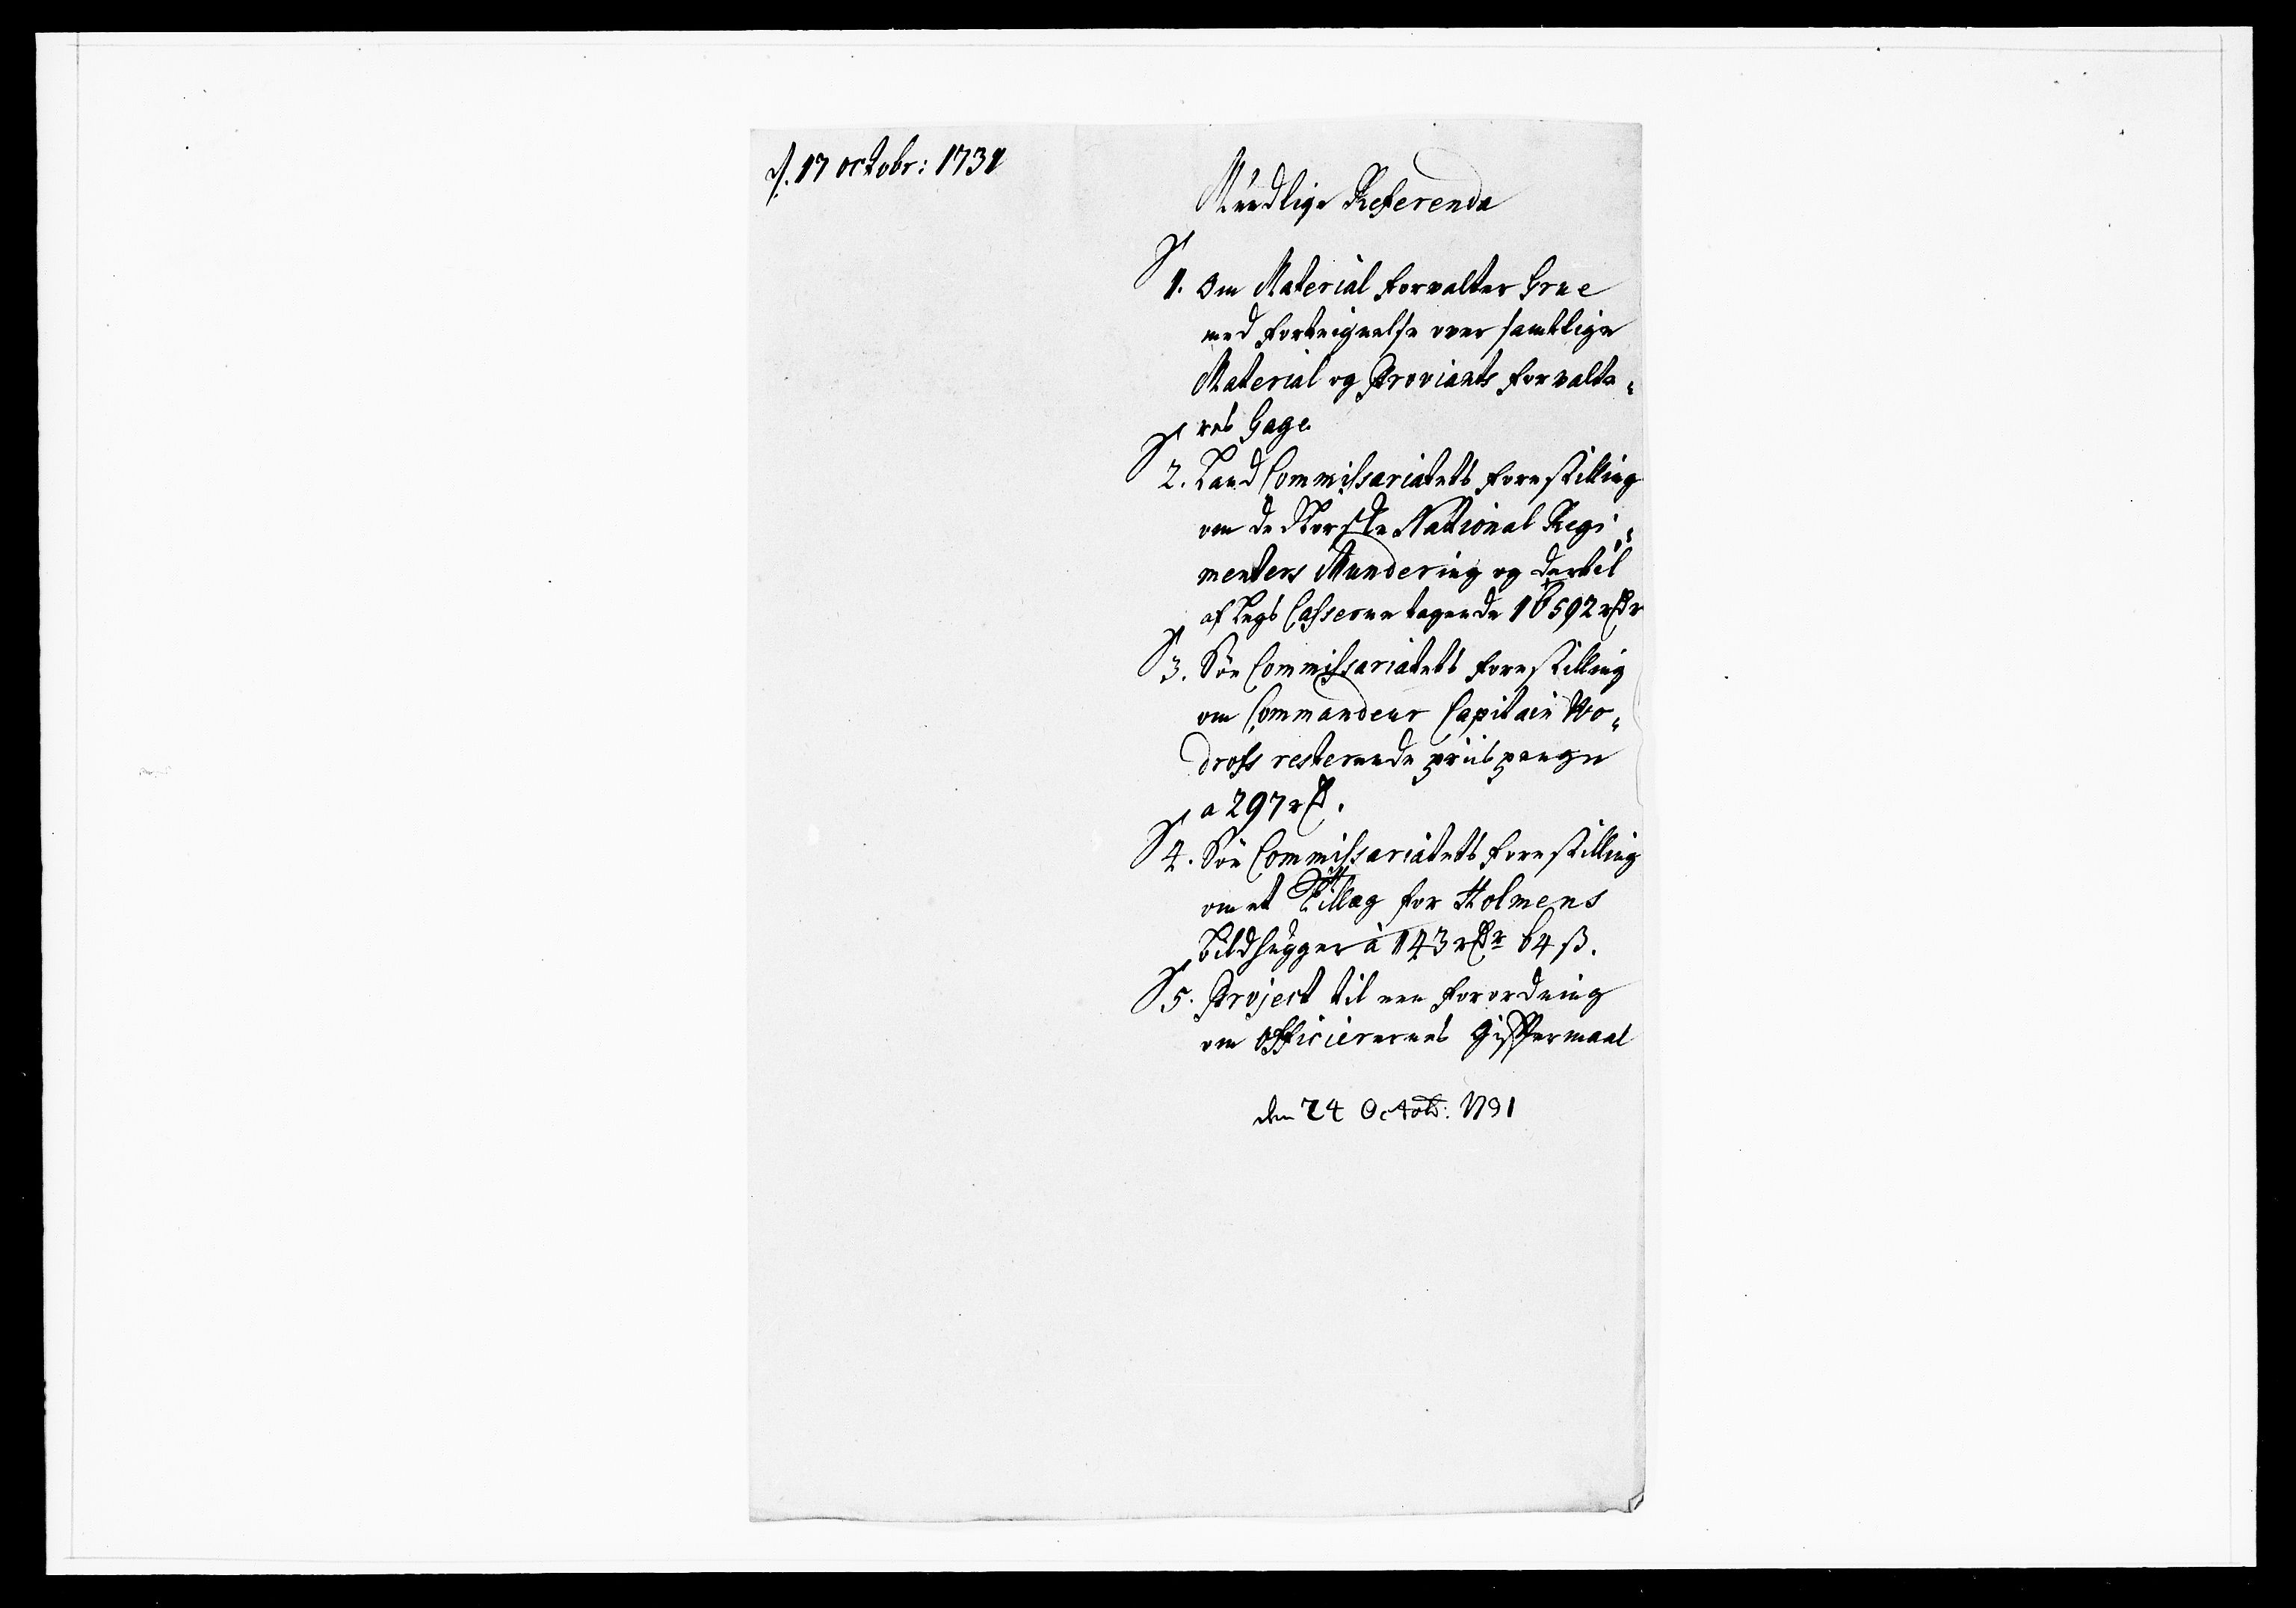 d. 17 octobr: 1731
Mundlige Referenda
1. Om Material forvalter Grue
med forteignelse over samtlige
Material og Proviants forvalte-
res Gage.
2. Land Commissariatets forestilling
om de Norske National Regi-
menters Mundering og dertil
af Legs Casserne tagende 16592 rdr
3. Söe Commissariatets forestilling
om Commandeur Capitain Wo-
droffs resterende priispenge
a 297 rd.
4. Söe Commissariatets forestilling
om et Tillæg for Holmens
bildhugger à 143 rdr 64 ß.
5. Project til een forordning
om Officierernes Giftermaal
den 24 Octob: 1731